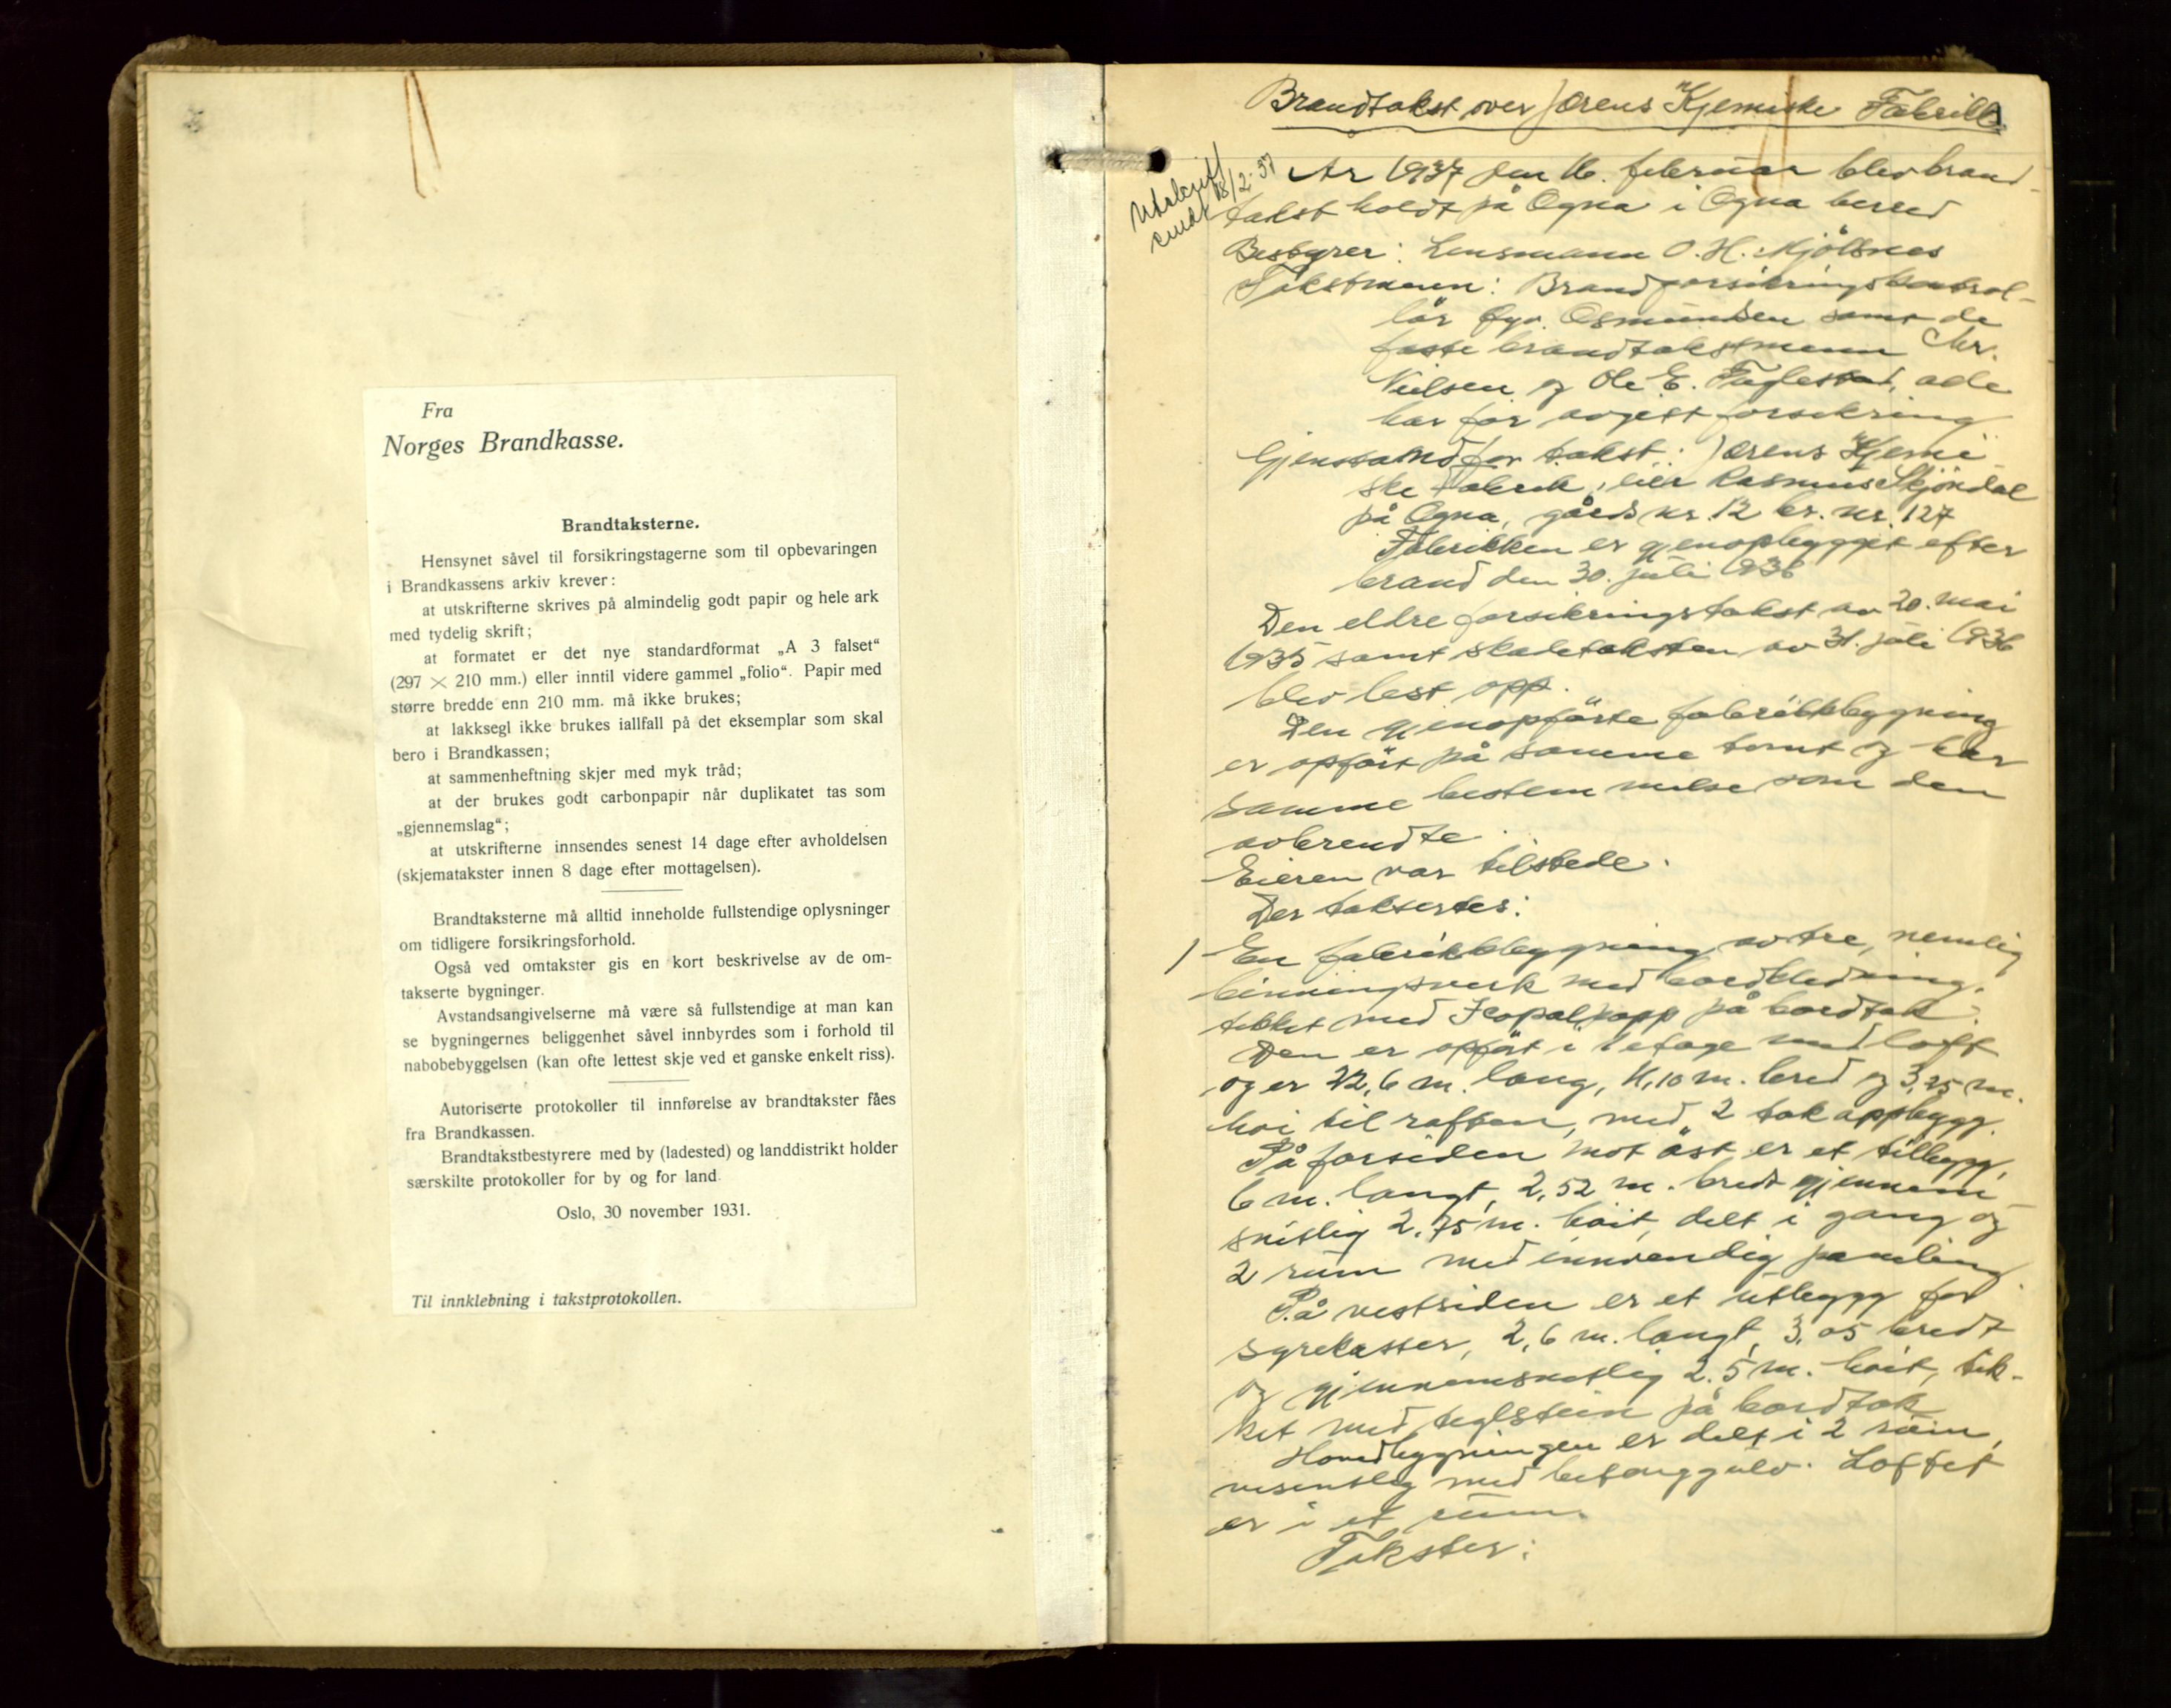 Fra
Norges Brandkasse.
Brandtaksterne.
Hensynet såvel til forsikringstagerne som til opbevaringen
i Brandkassens arkiv krever:
at utskrifterne skrives på almindelig godt papir og hele ark
med tydelig skrift;
at formatet er det nye standardformat „A 3 falset“
(297 × 210 mm.) eller inntil videre gammel „folio“. Papir med
større bredde enn 210 mm. må ikke brukes;
at lakksegl ikke brukes iallfall på det eksemplar som skal
bero i Brandkassen;
at sammenheftning skjer med myk tråd;
at der brukes godt carbonpapir når duplikatet tas som
„gjennemslag“;
at utskrifterne innsendes senest 14 dage efter avholdelsen
(skjematakster innen 8 dage efter mottagelsen).
Brandtaksterne må alltid inneholde fullstendige oplysninger
om tidligere forsikringsforhold.
Også ved omtakster gis en kort beskrivelse av de om-
takserte bygninger.
Avstandsangivelserne må være så fullstendige at man kan
se bygningernes beliggenhet såvel innbyrdes som i forhold til
nabobebyggelsen (kan ofte lettest skje ved et ganske enkelt riss).
Autoriserte protokoller til innførelse av brandtakster fåes
fra Brandkassen.
Brandtakstbestyrere med by (ladested) og landdistrikt holder
særskilte protokoller for by og for land.
Oslo, 30 november 1931.
Til innklebning i takstprotokollen.
Brandtakst over Jærens Kjemiske Fabrikk
Utskrift
sendt 18/2-37
År 1937 den 16. februar blev brand-
takst holdt på Ogna i Ogna herred
Bestyrer: Lensmann O. H. Mjølsnes
Takstmenn: Brandforsikringskontrol-
lør Osmundsen samt de
faste brandtakstmenn Chr.
Nielsen og Ole E. Fuglestad, alle
har før avgitt forsikring
Gjenstand for takst: Jærens Kjemi-
ske Fabrik, eier Rasmus Skjørdal
på Ogna, gårds nr. 12 br. nr. 127
Fabrikken er gjenopbygget efter
brand den 30. juli 1936
Den eldre forsikringstakst av 20. mai
1935 samt skadetaksten av 31. juli 1936
blev lest opp.
Den gjenopførte fabrikkbygning
er opført på samme tomt og har
samme bestemmelse som den
avbrendte.
Eieren var tilstede.
Der takseres:
1 En fabrikkbygning av tre, nemlig
binningsverk med bordkledning,
tekket med Icopalpapp på bordtak.
Den er opført i 1 etage med loft
og er 22,6 m. lang, 11,10 m. bred og 3,25 m.
høi til raften, med 2 takoppbygg.
På forsiden mot øst er et tilbygg,
6 m. langt, 2,52 m. bredt gjennem-
snitlig 2,75 m. høit, delt i gang og
2 rum med innvendig paneling.
På vestsiden er et utbygg for
syrekasser, 2,6 m. langt, 3,05 bredt
og gjennemsnitlig 2.5 m. høit, tek-
ket med teglstein på bordtak
Hovedbygningen er delt i 2 rum,
vesentlig med betonggulv. Loftet
er i et rum.
Takster: